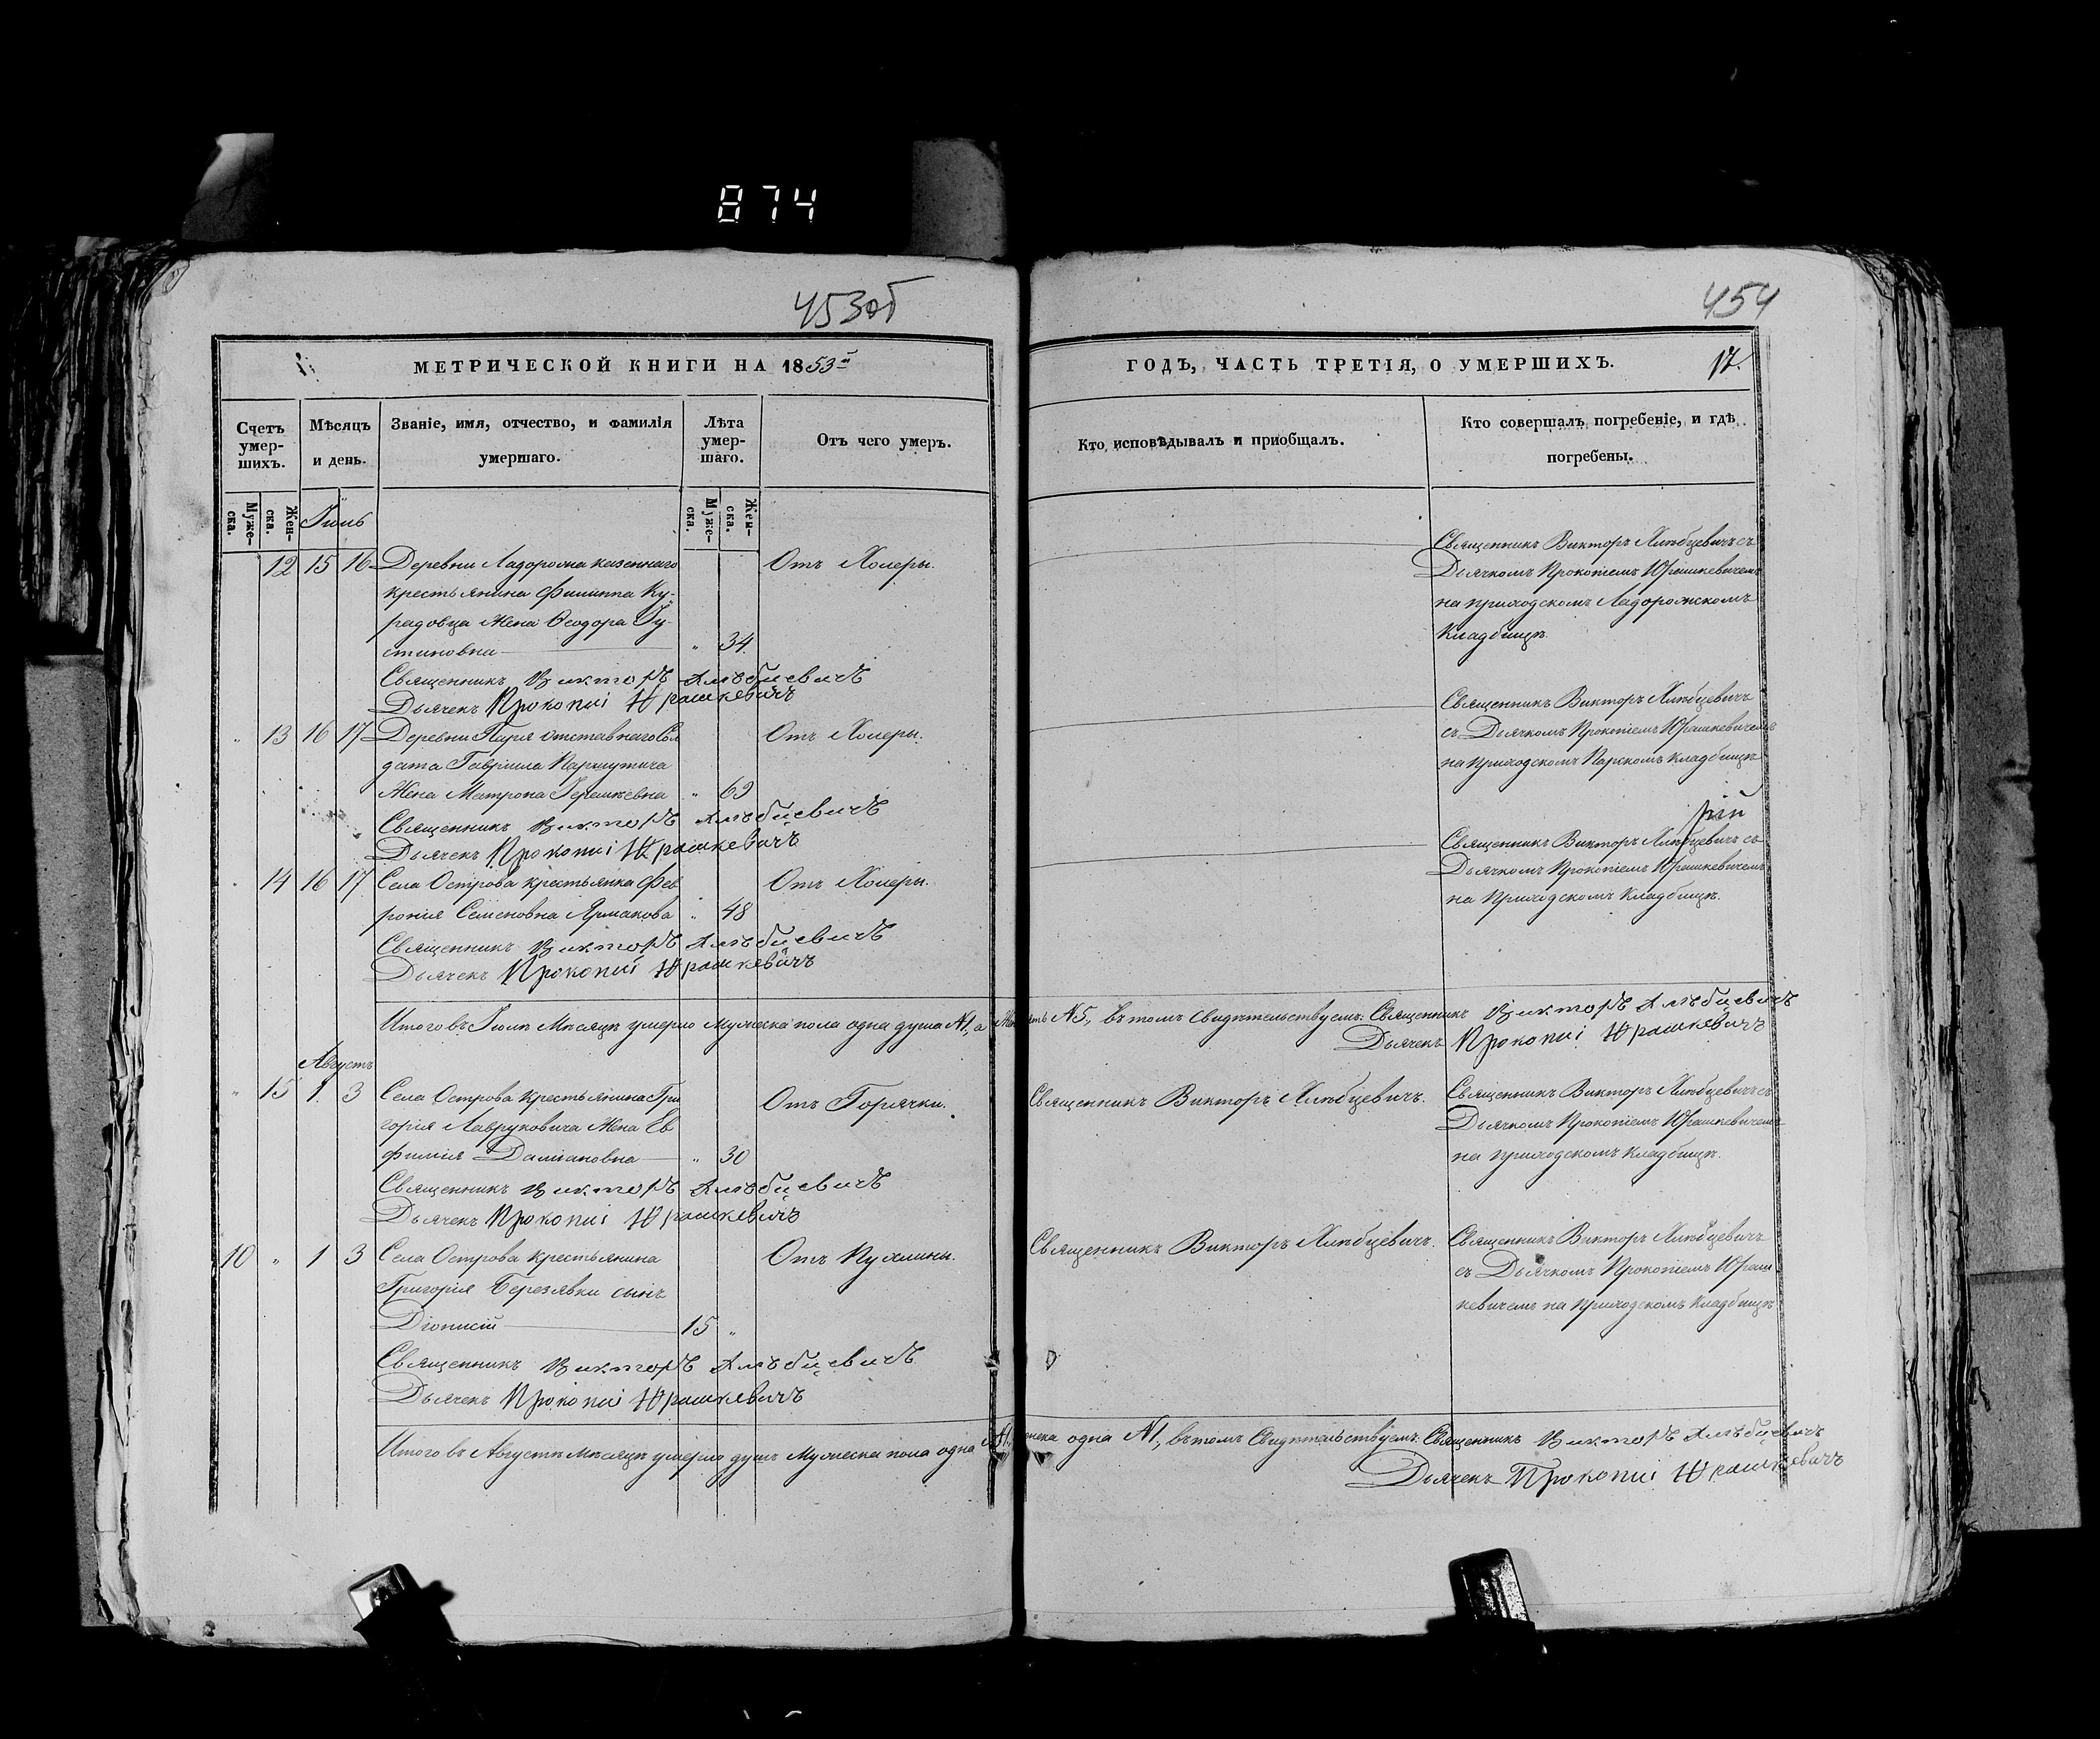 874
453об
454
МЕТРИЧЕСКОЙ КНИГИ НА 1853й
ГОДЪ, ЧАСТЬ ТРЕТІЯ, О УМЕРШИХЪ.
17.
Счетъ умер-шихъ.
Мѣсяцъ и день.
Званіе, имя, отчество, и фамилія умершаго.
Лѣта умер-шаго.
Отъ чего умеръ.
Кто исповѣдывалъ и приобщалъ.
Кто совершалъ погребеніе, и гдѣ погребены.
Муже-ска.
Жен-ска.
Муже-ска.
Жен-ска.
Іюль
12 15 16 Деревни Ладорожа казеннаго
крестьянина Филиппа Ку-
радовца жена Ѳеодора Іу-
стиновна " 34.
Отъ Холеры.
Священникъ Викторъ Хлѣбцевичъ съ
Дьячкомъ Прокопіемъ Юрашкевичемъ
на приходскомъ Ладорожскомъ
кладбищѣ.
Священникъ Викторъ Хлѣбцевичъ
Дьячекъ Прокопій Юрашкевичъ
" 13 16 17 Деревни Паря отставнаго Сол
дата Гавріила
жена Матрона " 69
Отъ Холеры.
Священникъ Викторъ Хлѣбцевичъ
съ Дьячкомъ Прокопіемъ Юрашкевичемъ
на приходскомъ Парскомъ кладбищѣ
Священникъ Викторъ Хлѣбцевичъ
Дьячекъ Прокопій Юрашкевичъ
" 14 16 17 Села Острова крестьянка Фев
ронія Семеновна Ярмакова " 48
Отъ Холеры.
Священникъ Викторъ Хлѣбцевичъ съ
Дьячкомъ Прокопіемъ Юрашкевичемъ
на приходскомъ кладбищѣ.
Священникъ Викторъ Хлѣбцевичъ
Дьячекъ Прокопій Юрашкевичъ
Итого въ Іюлѣ Мѣсяцѣ умерло мужеска пола одна душа №1, а №5, въ томъ свидѣтельствуемъ: Священникъ Викторъ Хлѣбцевичъ
Дьячекъ Прокопій Юрашкевичъ
Августъ
" 15 1 3 Села Острова крестьянина Гри
горія Лавруковича жена Ев
фимія Даміановна " 30
Отъ Горячки.
Священникъ Викторъ Хлѣбцевичъ.
Священникъ Викторъ Хлѣбцевичъ съ
Дьячкомъ Прокопіемъ Юрашкевичемъ
на приходскомъ кладбищѣ.
Священникъ Викторъ Хлѣбцевичъ
Дьячекъ Прокопій Юрашкевичъ
10 " 1 3 Села Острова крестьянина
Григорія Березявки сынъ
Діонисій 15 "
Отъ Пухлины.
Священникъ Викторъ Хлѣбцевичъ.
Священникъ Викторъ Хлѣбцевичъ
съ Дьячкомъ Прокопіемъ Юраш
кевичемъ на приходскомъ кладбищѣ
Священникъ Викторъ Хлѣбцевичъ
Дьячекъ Прокопій Юрашкевичъ
Итого въ Августѣ мѣсяцѣ умерло душъ мужеска пола одна №1, женска одна №1, въ томъ свидѣтельствуемъ: Священникъ Викторъ Хлѣбцевичъ
Дьячекъ Прокопій Юрашкевичъ